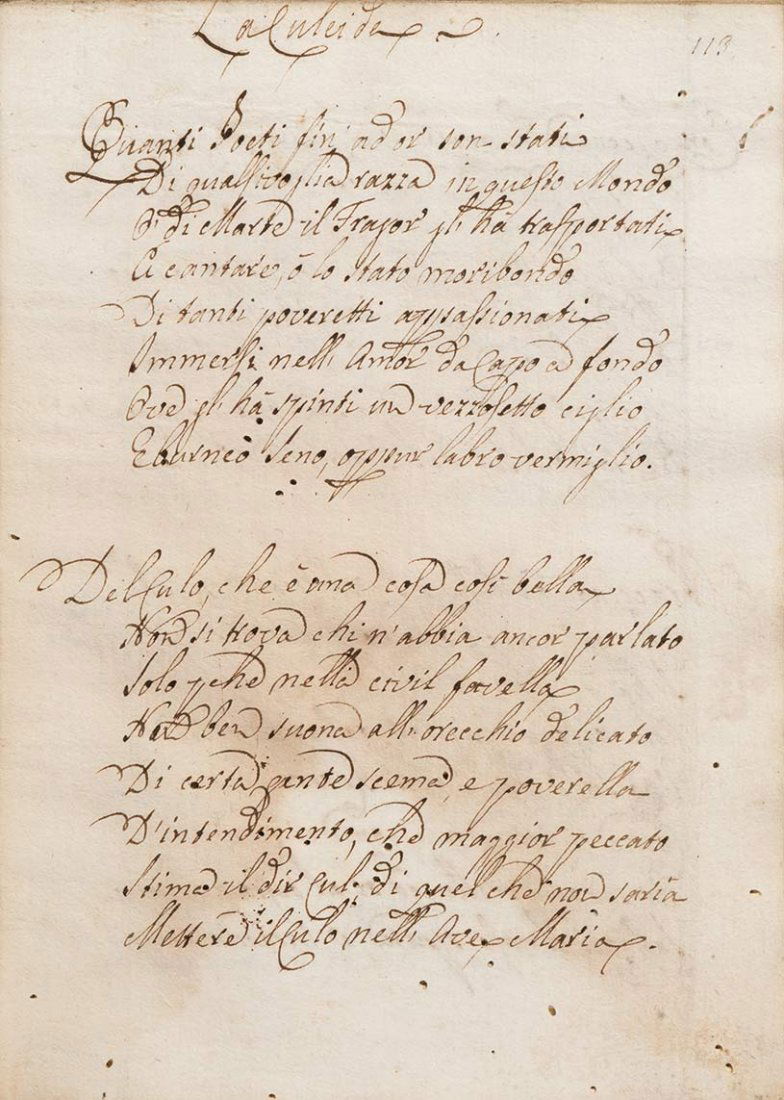 La Culeide
113
Quanti Poeti fin' ad or son stati
Di qualsivoglia razza in questo Mondo
O di Marte il Fragor gl' hà trasportati
A cantare, ò lo stato moribondo
Di tanti poveretti appassionati
Immersi nell' Amor da Capo a fondo
Ove gl' hà spinti un vezzosetto ciglio
Eburneo seno, oppur labro vermiglio.
Del Culo, che è una cosa così bella
Non si trova chi n' abbia ancor parlato
Solo pchè nella civil favella
Non ben suona all' orecchio delicato
Di certa gente scema, e poverella
D' intendimento, che maggior peccato
Stima il dir Cul' di quel che non saria
Mettere il Culo nell' Ave Maria.